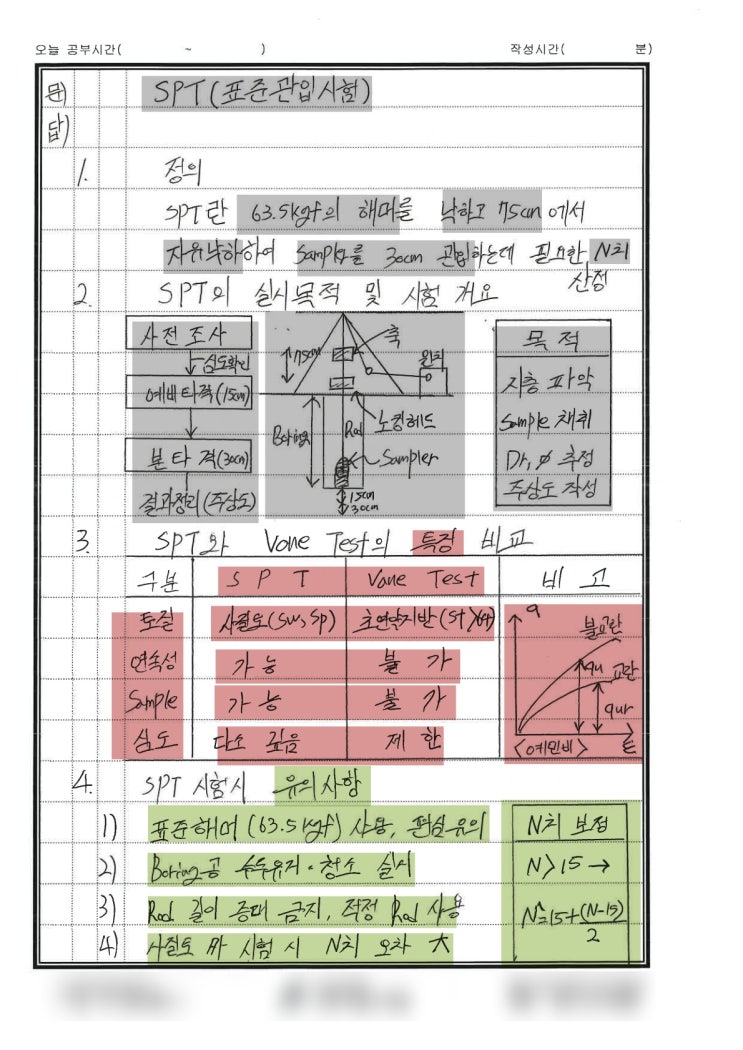 오늘 공부시간( ~ ) 작성시간( 분)
문) SPT(표준관입시험)
답)
1. 정의
SPT란 63.5kgf의 해머를 낙하고 75cm에서
자유낙하하여 Sampler를 30cm 관입하는데 필요한 N치
산정
2. SPT의 실시목적 및 시험 개요
사전조사
심도확인
예비타격(15cm)
본타격(30cm)
결과정리(주상도)
75cm
추
윈치
노킹헤드
Boring
Rod
Sampler
15cm
30cm
목적
지층 파악
Sample 채취
Dr, ø 추정
주상도 작성
3. SPT와 Vane Test의 특징 비교
구분 SPT Vane Test 비고
토질 사질토(SW, SP) 초연약지반(St>64)
연속성 가능 불가
Sample 가능 불가
심도 다소 깊음 제한
q
불교란
qu
교란
qur
<예민비> ε
4. SPT 시험시 유의사항
1) 표준해머(63.5kgf) 사용, 편심유의
2) Boring공 수두유지·청소 실시
3) Rod 길이 증대 금지, 적정 Rod 사용
4) 사질토 시험 시 N치 오차 大
N치 보정
N>15 →
N'=15+(N-15)/2